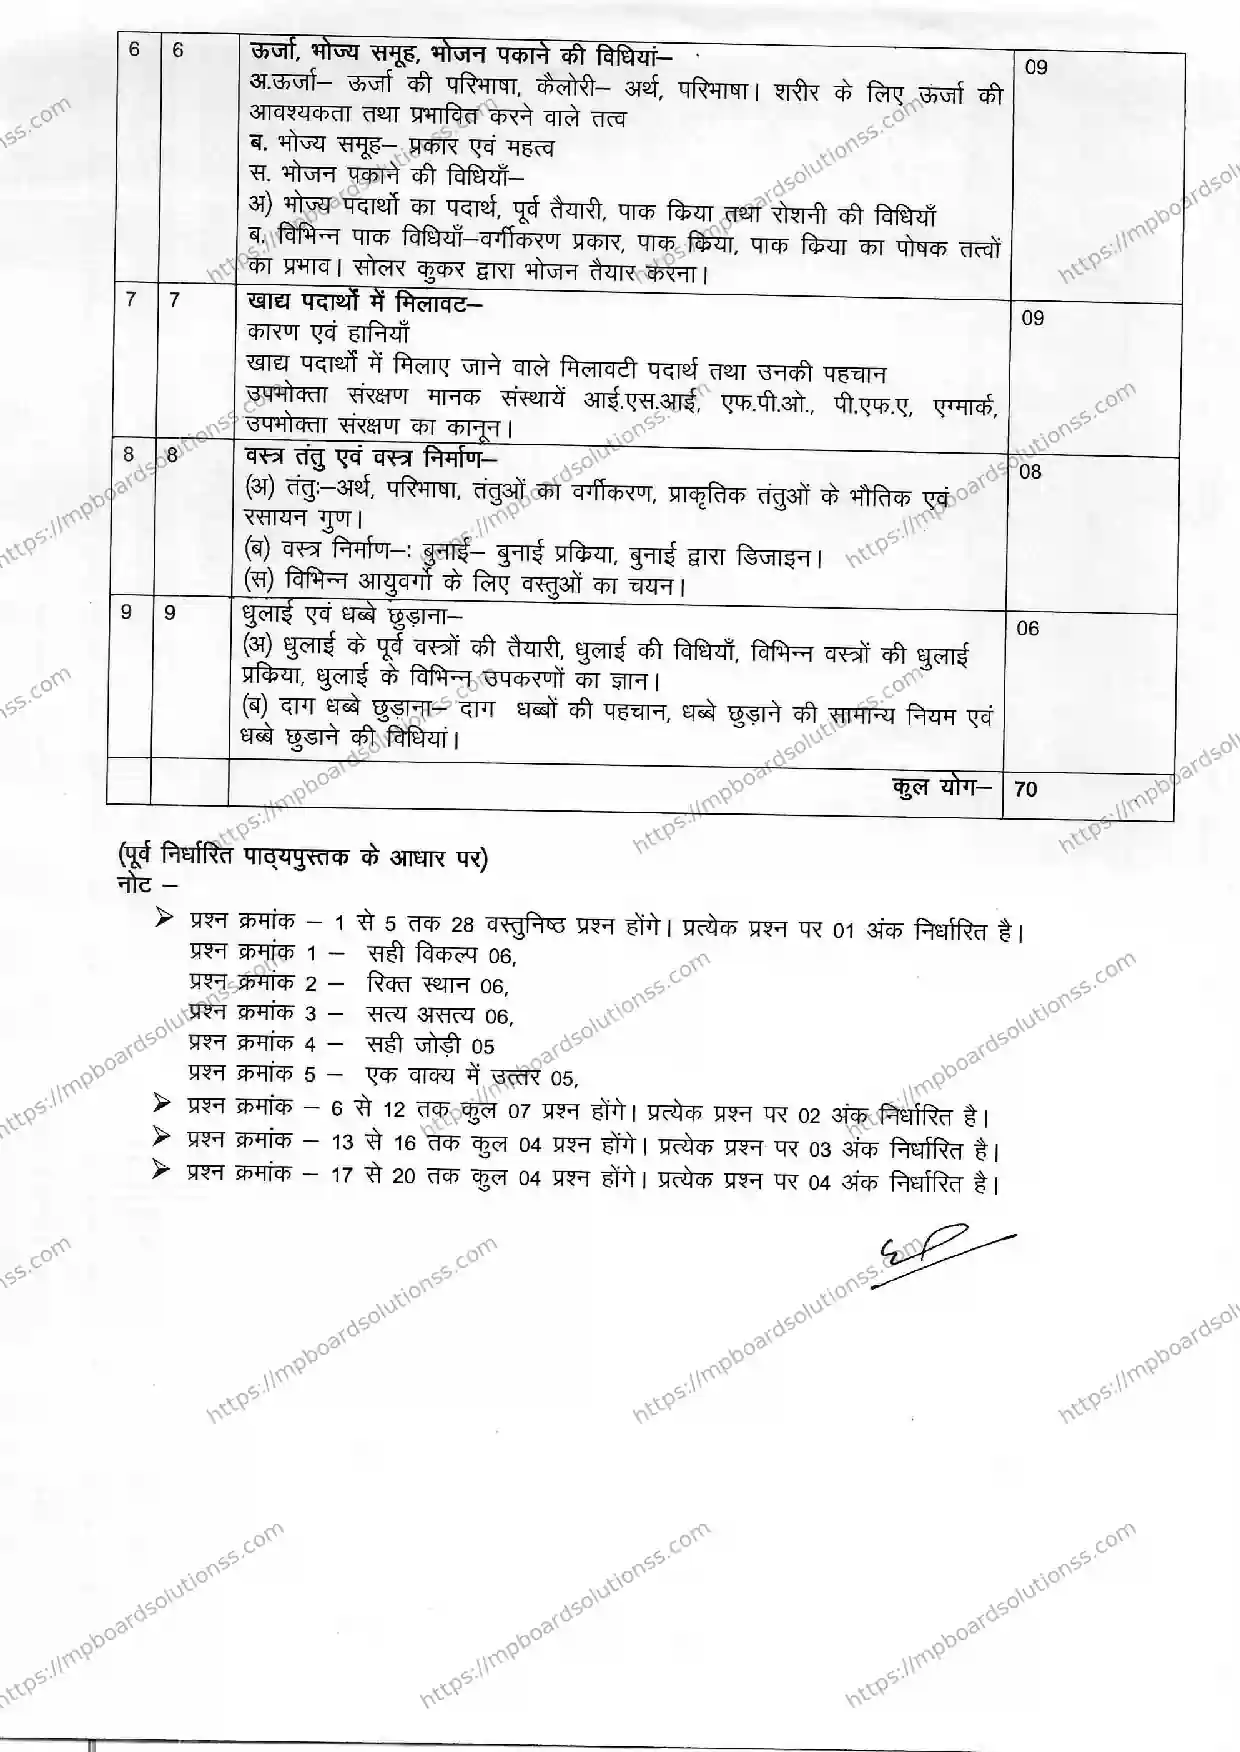 6 6 ऊर्जा, भोज्य समूह, भोजन पकाने की विधियां– 09
अ.ऊर्जा– ऊर्जा की परिभाषा, कैलोरी– अर्थ, परिभाषा। शरीर के लिए ऊर्जा की
आवश्यकता तथा प्रभावित करने वाले तत्व
ब. भोज्य समूह– प्रकार एवं महत्व
स. भोजन पकाने की विधियाँ–
अ) भोज्य पदार्थो का पदार्थ, पूर्व तैयारी, पाक किया तथा रोशनी की विधियाँ
ब. विभिन्न पाक विधियाँ–वर्गीकरण प्रकार, पाक किया, पाक किया का पोषक तत्वों
का प्रभाव। सोलर कुकर द्वारा भोजन तैयार करना।
7 7 खाद्य पदार्थो में मिलावट– 09
कारण एवं हानियाँ
खाद्य पदार्थों में मिलाए जाने वाले मिलावटी पदार्थ तथा उनकी पहचान
उपभोक्ता संरक्षण मानक संस्थायें आई.एस.आई, एफ.पी.ओ., पी.एफ.ए, एग्मार्क,
उपभोक्ता संरक्षण का कानून।
8 8 वस्त्र तंतु एवं वस्त्र निर्माण– 08
(अ) तंतुः–अर्थ, परिभाषा, तंतुओं का वर्गीकरण, प्राकृतिक तंतुओं के भौतिक एवं
रसायन गुण।
(ब) वस्त्र निर्माण–: बुनाई– बुनाई प्रकिया, बुनाई द्वारा डिजाइन।
(स) विभिन्न आयुवर्गो के लिए वस्तुओं का चयन।
9 9 धुलाई एवं धब्बे छुड़ाना– 06
(अ) धुलाई के पूर्व वस्त्रों की तैयारी, धुलाई की विधियाँ, विभिन्न वस्त्रों की धुलाई
प्रकिया, धुलाई के विभिन्न उपकरणों का ज्ञान।
(ब) दाग धब्बे छुड़ाना– दाग धब्बों की पहचान, धब्बे छुड़ाने की सामान्य नियम एवं
धब्बे छुडाने की विधियां।
कुल योग– 70
(पूर्व निर्धारित पाठ्यपुस्तक के आधार पर)
नोट –
➢ प्रश्न क्रमांक – 1 से 5 तक 28 वस्तुनिष्ठ प्रश्न होंगे। प्रत्येक प्रश्न पर 01 अंक निर्धारित है।
प्रश्न क्रमांक 1 – सही विकल्प 06,
प्रश्न क्रमांक 2 – रिक्त स्थान 06,
प्रश्न क्रमांक 3 – सत्य असत्य 06,
प्रश्न क्रमांक 4 – सही जोड़ी 05
प्रश्न क्रमांक 5 – एक वाक्य में उत्तर 05,
➢ प्रश्न क्रमांक – 6 से 12 तक कुल 07 प्रश्न होंगे। प्रत्येक प्रश्न पर 02 अंक निर्धारित है।
➢ प्रश्न क्रमांक – 13 से 16 तक कुल 04 प्रश्न होंगे। प्रत्येक प्रश्न पर 03 अंक निर्धारित है।
➢ प्रश्न क्रमांक – 17 से 20 तक कुल 04 प्रश्न होंगे। प्रत्येक प्रश्न पर 04 अंक निर्धारित है।
https://mpboardsolutionss.com